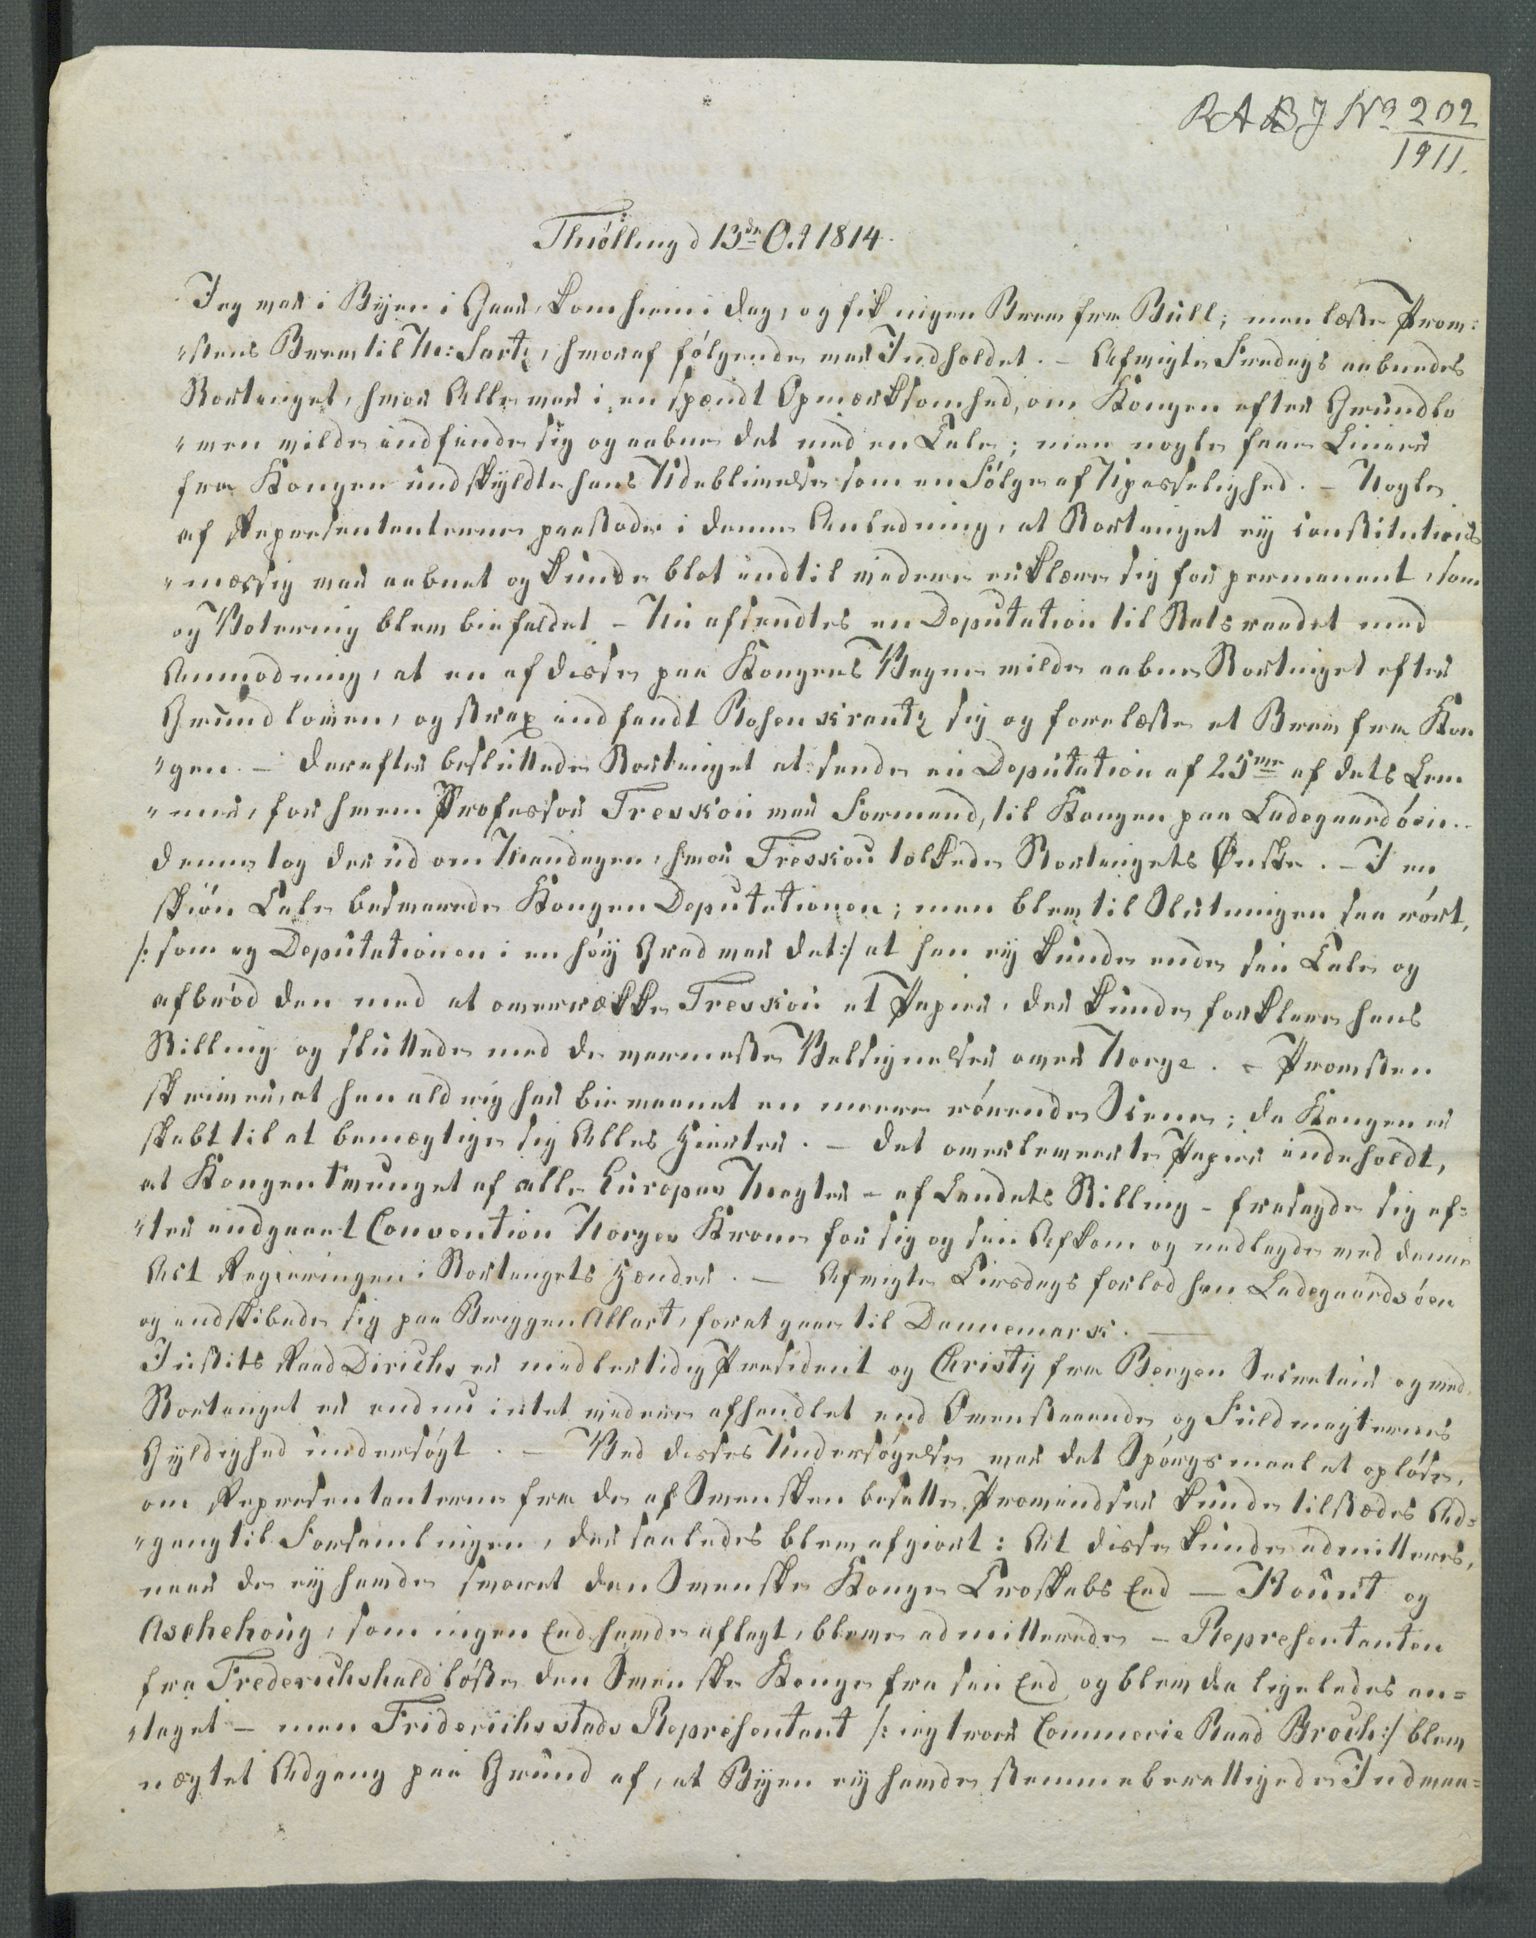 RA BJ No 202
1911.
Thiølling d 13de Oct 1814.
Jeg var i Byen i Gaar, kom hiem i Dag, og fik ingen Brev fra Bull; men læste Prov:
"stens Brev til M: Sartz, hvoraf følgende var Indholdet. – Afvigte Fredags aabnedes
Stortinget, hvor Alle var i en spændt Opmærksomhed, om Kongen efter Grundlo
"ven vilde indfinde sig og aabne det med en Tale; men nogle faae Linier
fra Kongen undskyldte hans Udeblivelse som en Følge af Upasselighed. – Nogle
af Repræsentanterne paastode i denne Anledning, at Stortinget eÿ constitutions
"mæssig var aabnet og kunde blot indtil videre erklære sig for permanent, som
og Votering blev biefaldet – Nu afsendtes en Deputation til Statsraadet med
Anmodning, at en af disse paa Kongens Vegne vilde aabne Stortinget efter
Grundloven, og strax indfandt Rosenkrantz sig og forelæste et Brev fra Kon
"gen. – Derefter besluttede Stortinget at sende en Deputation af 25ve af dets Lem
"mer, for hvem Professor Treskou var Formand, til Kongen paa Ladegaardøen. –
Denne tog der ud om Mandagen, hvor Treskou tolkede Stortingets Ønske. – I en
skiøn Tale besvarede Kongen Deputationen; men blev til Slutningen saa rørt,
/: som og Deputationen i en høÿ Grad var det :/ at han eÿ kunde ende sin Tale og
afbrød den med at overrække Treskou et Papir, der kunde forklare hans
Stilling og sluttede med de varmeste Velsignelser over Norge. – Provsten
skriver, at han aldrig har bievaanet en mere rørende Scene; da Kongen er
skabt til at bemægtige sig Alles Hierter. – Det overleverte Papir indeholdt,
at Kongen tvunget af alle Europas Magter – af Landets Stilling – frasagde sig ef=
"ter indgaaet Convention Norges Krone for sig og sin Afkom og nedlagde med denne
Act Regieringen i Stortingets Hænder. – Afvigte Tirsdags forlod han Ladegaardsøen
og indskibede sig paa Briggen Allart, for at gaae til Dannemark. –
Justits Raad Dirichs er midlertidig President og Christÿ fra Bergen Secretair og ved
Stortinget er endnu intet videre afhandlet end Ovenstaaende og Fuldmagternes
Gyldighed undersøgt. – Ved disses Undersøgelse var det Spørgsmaal at opløse,
om Repræsentanterne fra de af Svensken besatte Provindser kunde tilstædes Ad=
"gang til Forsamlingen, der saaledes blev afgiort: At disse kunde admitteres,
naar de eÿ havde svoret den Svenske Konge Troskabs Eed – Kount og
Aschehoug, som ingen Eed havde aflagt, bleve admitterede – Repræsentanten
fra Frederichshald løste den Svenske Konge fra sin Eed og blev da ligeledes an=
"taget – men Friderichsstads Repræsentant /: ieg troer Commercie Raad Broch :/ blev
nægtet Adgang paa Grund af, at Byen eÿ havde stemmeberettigede Indvaa=